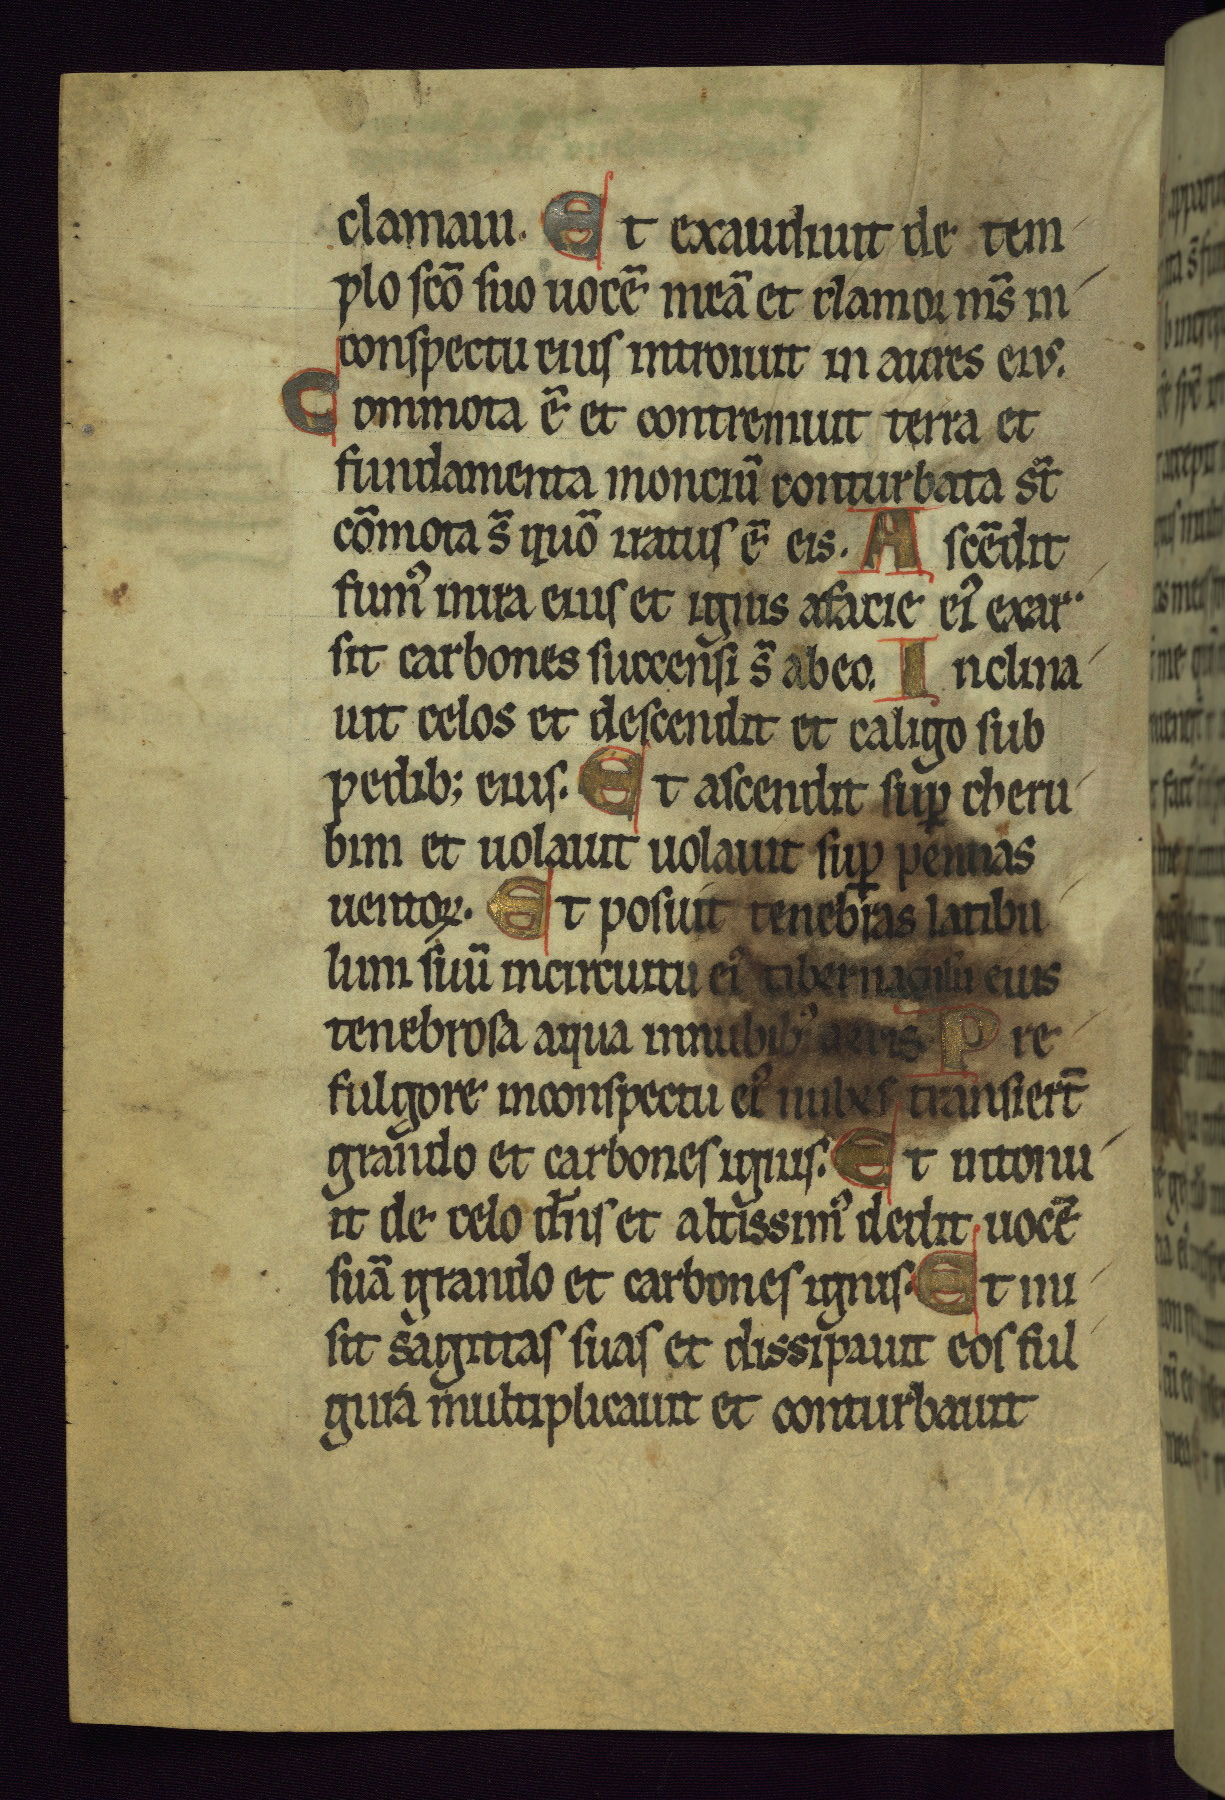 clamaui. Et exaudiuit de tem
plo scō suo uocē meā et clamor ms̄ in
conspectu eius introiuit in aures eiꝰ.
Commota ē et contremuit terra et
fundamenta monciū conturbata st̄
cōmota s̄ quō iratus ē eis. Ascēdit
fumꝰ inira eius et ignis afacie eiꝰ exar
sit carbones succensi s̄ abeo. Inclina
uit celos et descendit et caligo sub
pedib; eius. Et ascendit suꝑ cheru
bim et uolauit uolauit suꝑ pennas
uentoꝝ. Et posuit tenebras latibu
lum suū incircuitu eiꝰ tabernaculū eius
tenebrosa aqua innubibꝰ aeris Pre
fulgore inconspectu eiꝰ nubes transiert̄
grando et carbones ignis. Et intonu
it de celo dn̄s et altissimꝰ dedit uocē
suā grando et carbones ignis. Et mi
sit sagittas suas et dissipauit eos ful
gura multiplicauit et conturbauit